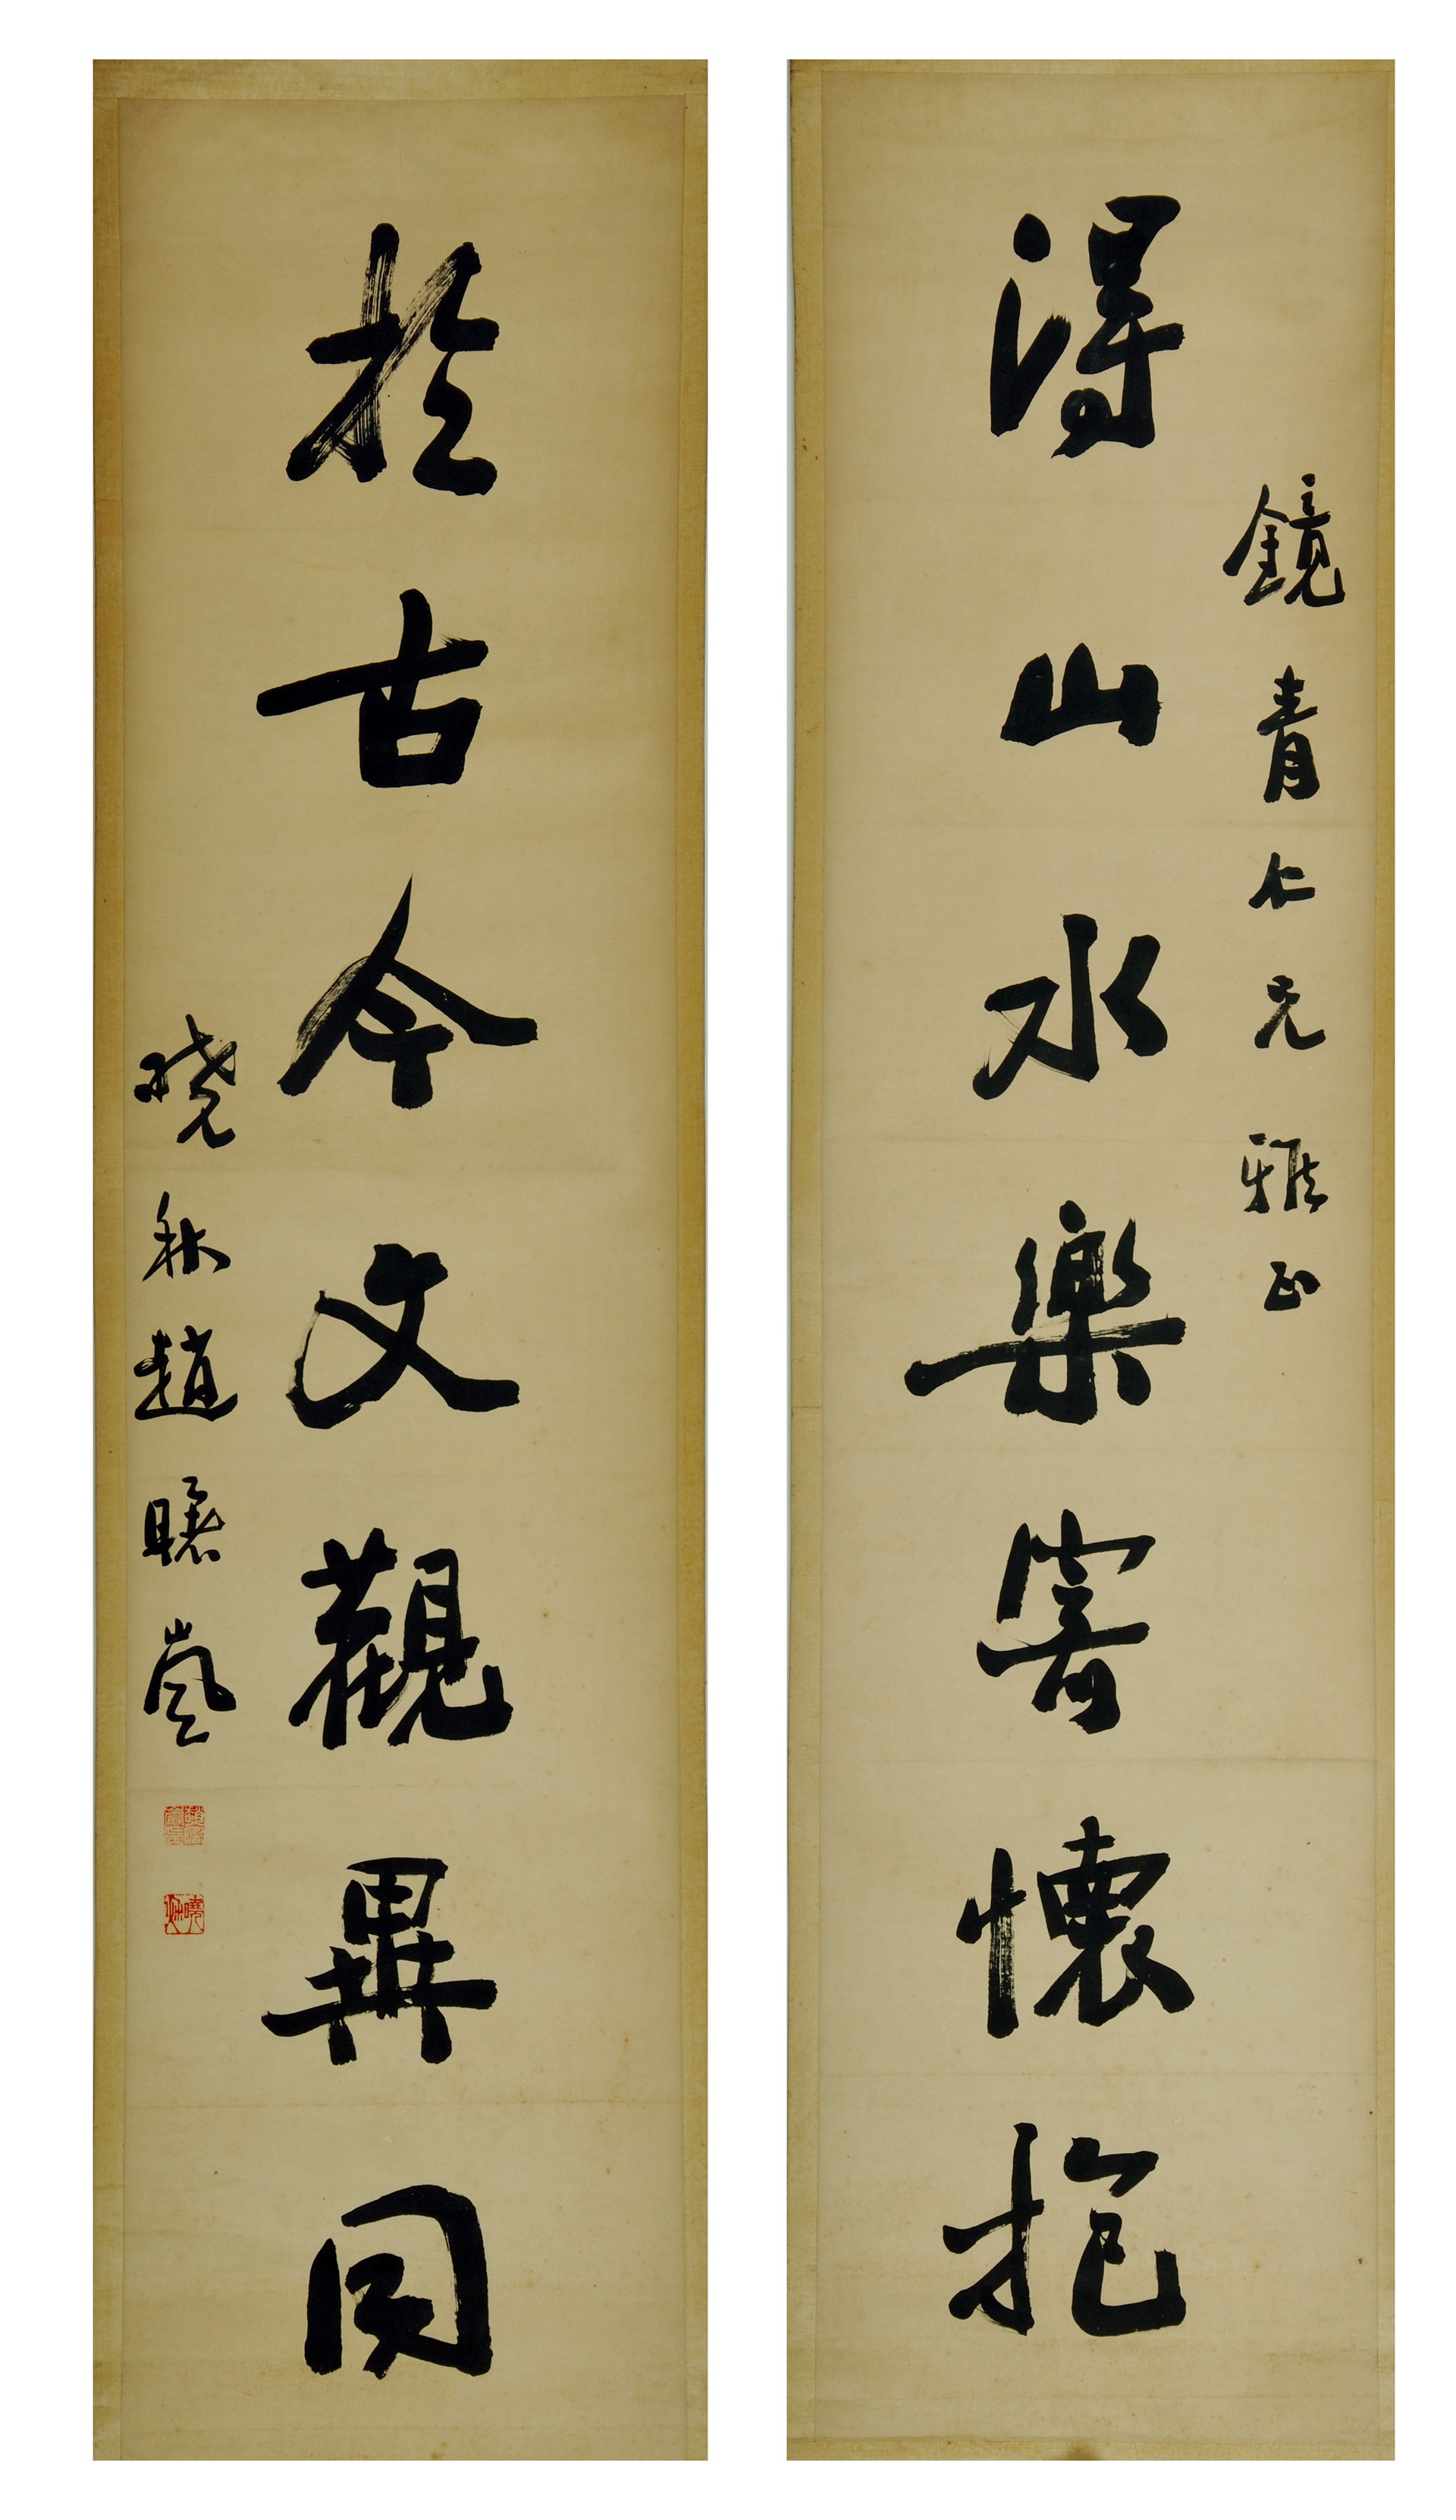 得山水樂寄懷抱
鏡青仁兄雅正
於古今文觀異同
曉秋趙曦嵐
曉秋